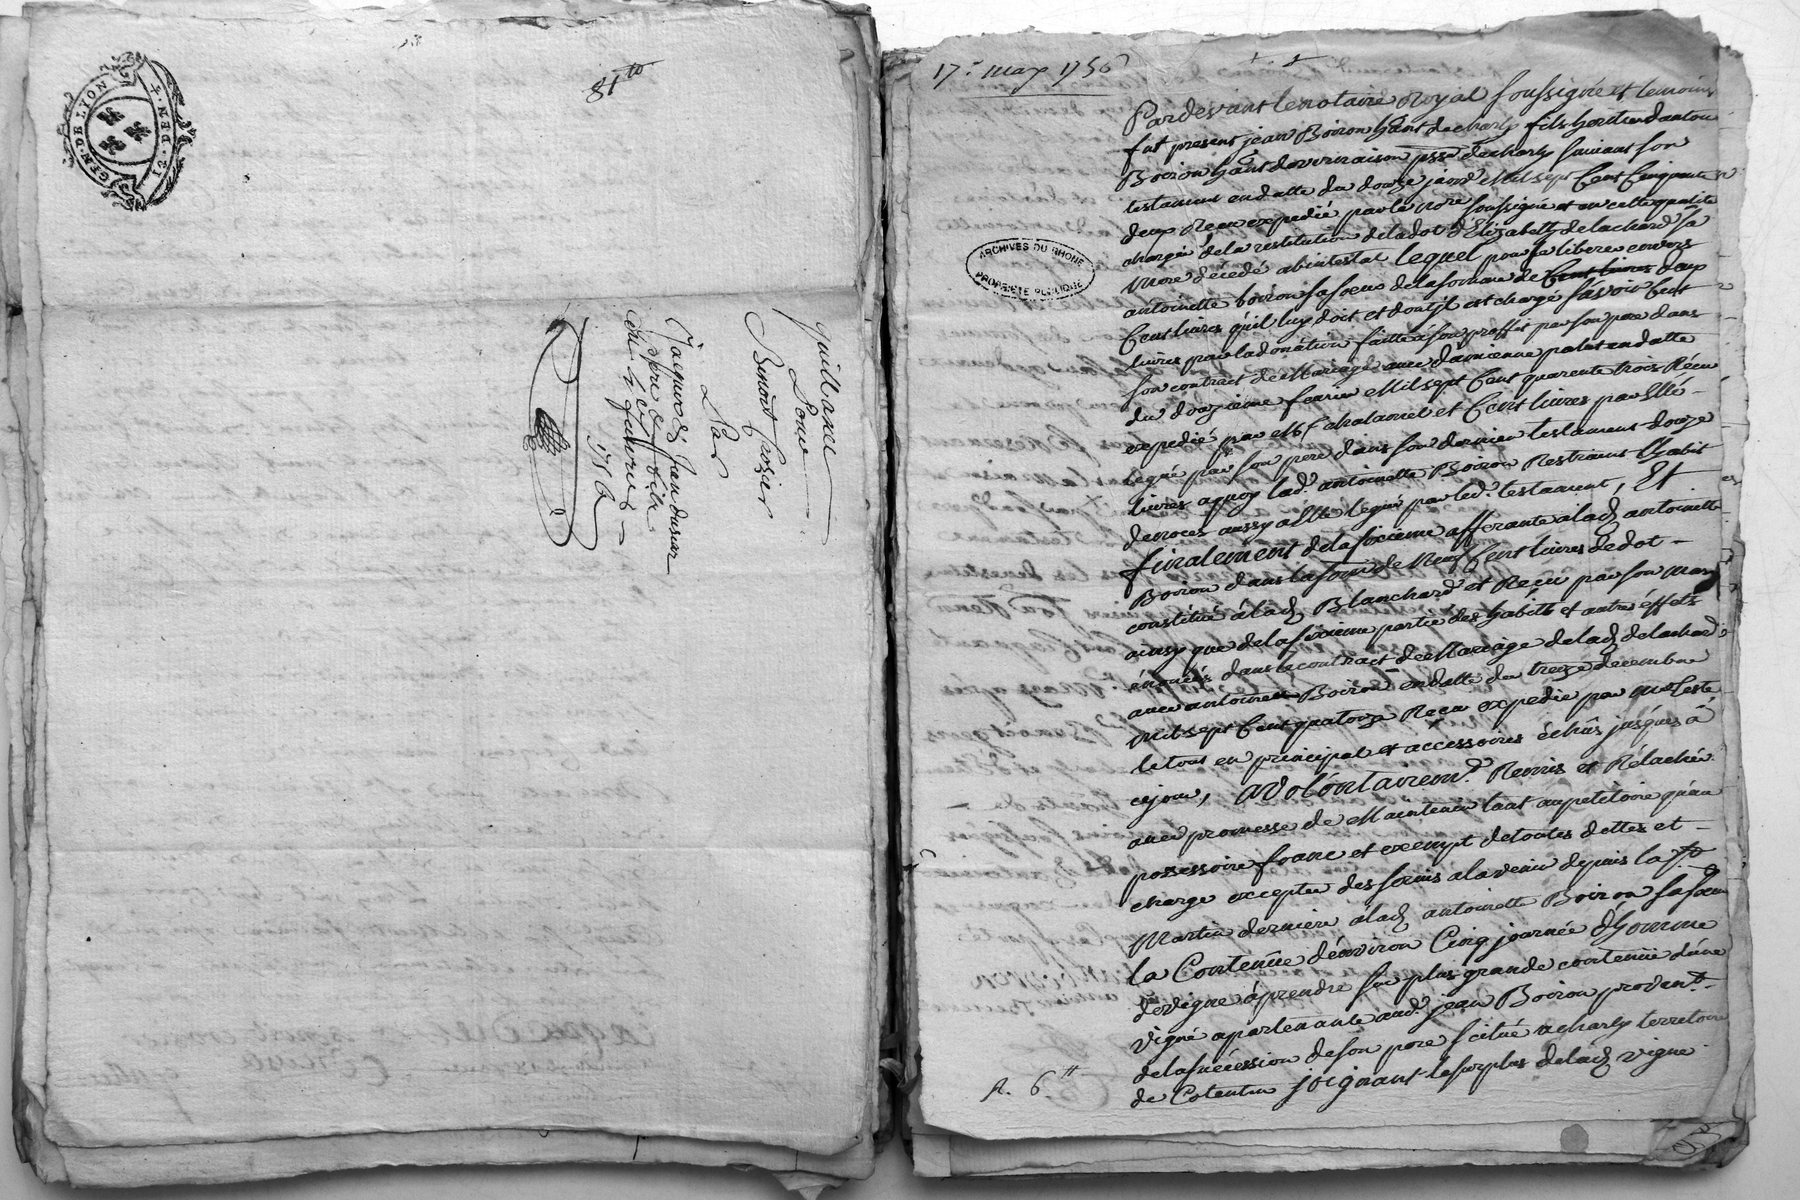 GEN·DE·LYON
12·DEN·4·
81to
Guillaume
Benoit Crozier
Par
Jacques & Jean dusar
Pere & fils
1756
17e may 1756
ARCHIVES DU RHONE
PROPRIETE PUBLIQUE
Pardevant le notaire Royal soussigné et temoins
fut present jean Boiron hant de charly fils heritier d'antoine
Boiron hant dovriraison psse de charly suivant son
testament en datte du douze janvr mil sept Cent Cinquante
deux Receu expedié par le nore soussigné et en cette qualité
chargé de la restitution de la dot d'Elizabeth de lachard sa
mere décedé abintestat lequel pour se liberer envers
antoinette boiron sa sœur de la somme de Cent livres deux
Cent livres qu'il luy doit et dont jl est chargé sávoir Cent
livres pour la donátion faitte á son proffit par son pere dans
son contract de Mariage avec damienne palet en datte
du douzieme fevrier Mil sept Cent quarente trois Réceu
expedié par Me fahalamel et Cent livres par Elle
legué par son pere dans son dernier testament douze
livres a quoy lad. antoinette Boiron Restraint l'habit
de noces aussy a Elle legué par led. testament, Et
finalement de la sixieme afferante á lad antoinette
Boiron dans la some de Neuf Cent livres de dot -
constitué á lad Blanchard et Reçu par son mary
ainsy que de la sixieme partie des habits et autre éffets
énoncés dans le contract de Mariage de lad delachard
avec antoine Boiron en datte du treze decembre
mil sept Cent quatorze Receu expedié par
le tout en principal et accessoires échûs jusques á
ce jour, a volontairemt. Remis et Rélaché
avec promesse de Maintenir tant au petitoire qu'au
possessoire franc et exempt de toutes dettes et -
charge exceptée des servis a lavenir depuis la St
Martin derniere á lad antoinette Boiron sa sœur
la Contenüe d'environ Cinq journée d'homme
de vigne á prendre sur plus grande contenüe d'une
vigne apartenante aud. jean Boiron provent.
de la succession de son pere scitué a charly terretoire
de Cotentin joignant le surplus de lad vigne
R. 6